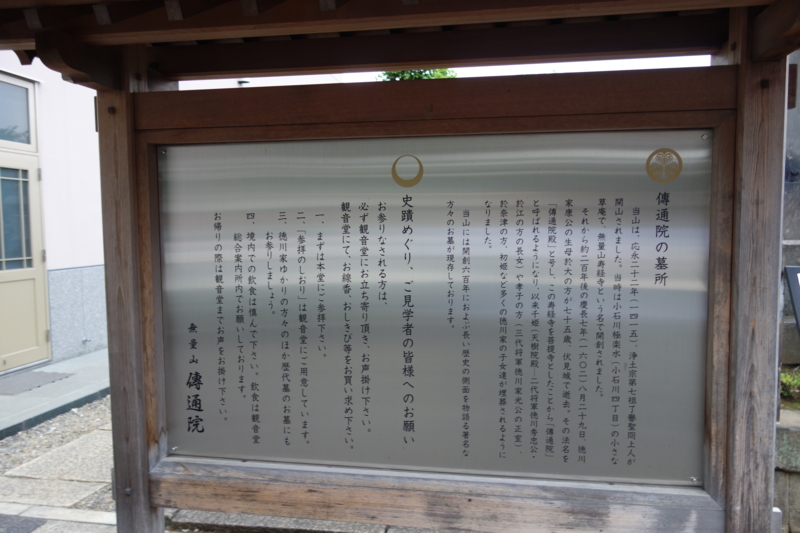 傳通院の墓所
当山は、応永二十二年(一四一五)、浄土宗第七祖了譽聖冏上人が
開山されました。当時は小石川極楽水(小石川四丁目)の小さな
草庵で、無量山寿経寺という名で開創されました。
それから約二百年後の慶長七年(一六〇二)八月二十九日、徳川
家康公の生母於大の方が七十五歳、伏見城で逝去。その法名を
「傳通院殿」と号し、この寿経寺を菩提寺としたことから「傳通院」
と呼ばれるようになり、以来千姫(天樹院殿、二代将軍徳川秀忠公・
於江の方の長女)や孝子の方(三代将軍徳川家光公の正室)、
於奈津の方、初姫など多くの徳川家の子女達が埋葬されるように
なりました。
当山には開創六百年におよぶ長い歴史の側面を物語る著名な
方々のお墓が現存しております。
史蹟めぐり、ご見学者の皆様へのお願い
お参りなされる方は、
必ず観音堂にお立ち寄り頂き、お声掛け下さい。
観音堂にて、お線香、おしきび等をお買い求め下さい。
一、まずは本堂にご参拝下さい。
二、「参拝のしおり」は観音堂にご用意しています。
三、徳川家ゆかりの方々のほか歴代墓のお墓にも
お参りしましょう。
四、境内での飲食は慎んで下さい。飲食は観音堂
総合案内所内でお願いしております。
お帰りの際は観音堂までお声をお掛け下さい。
無量山 傳通院